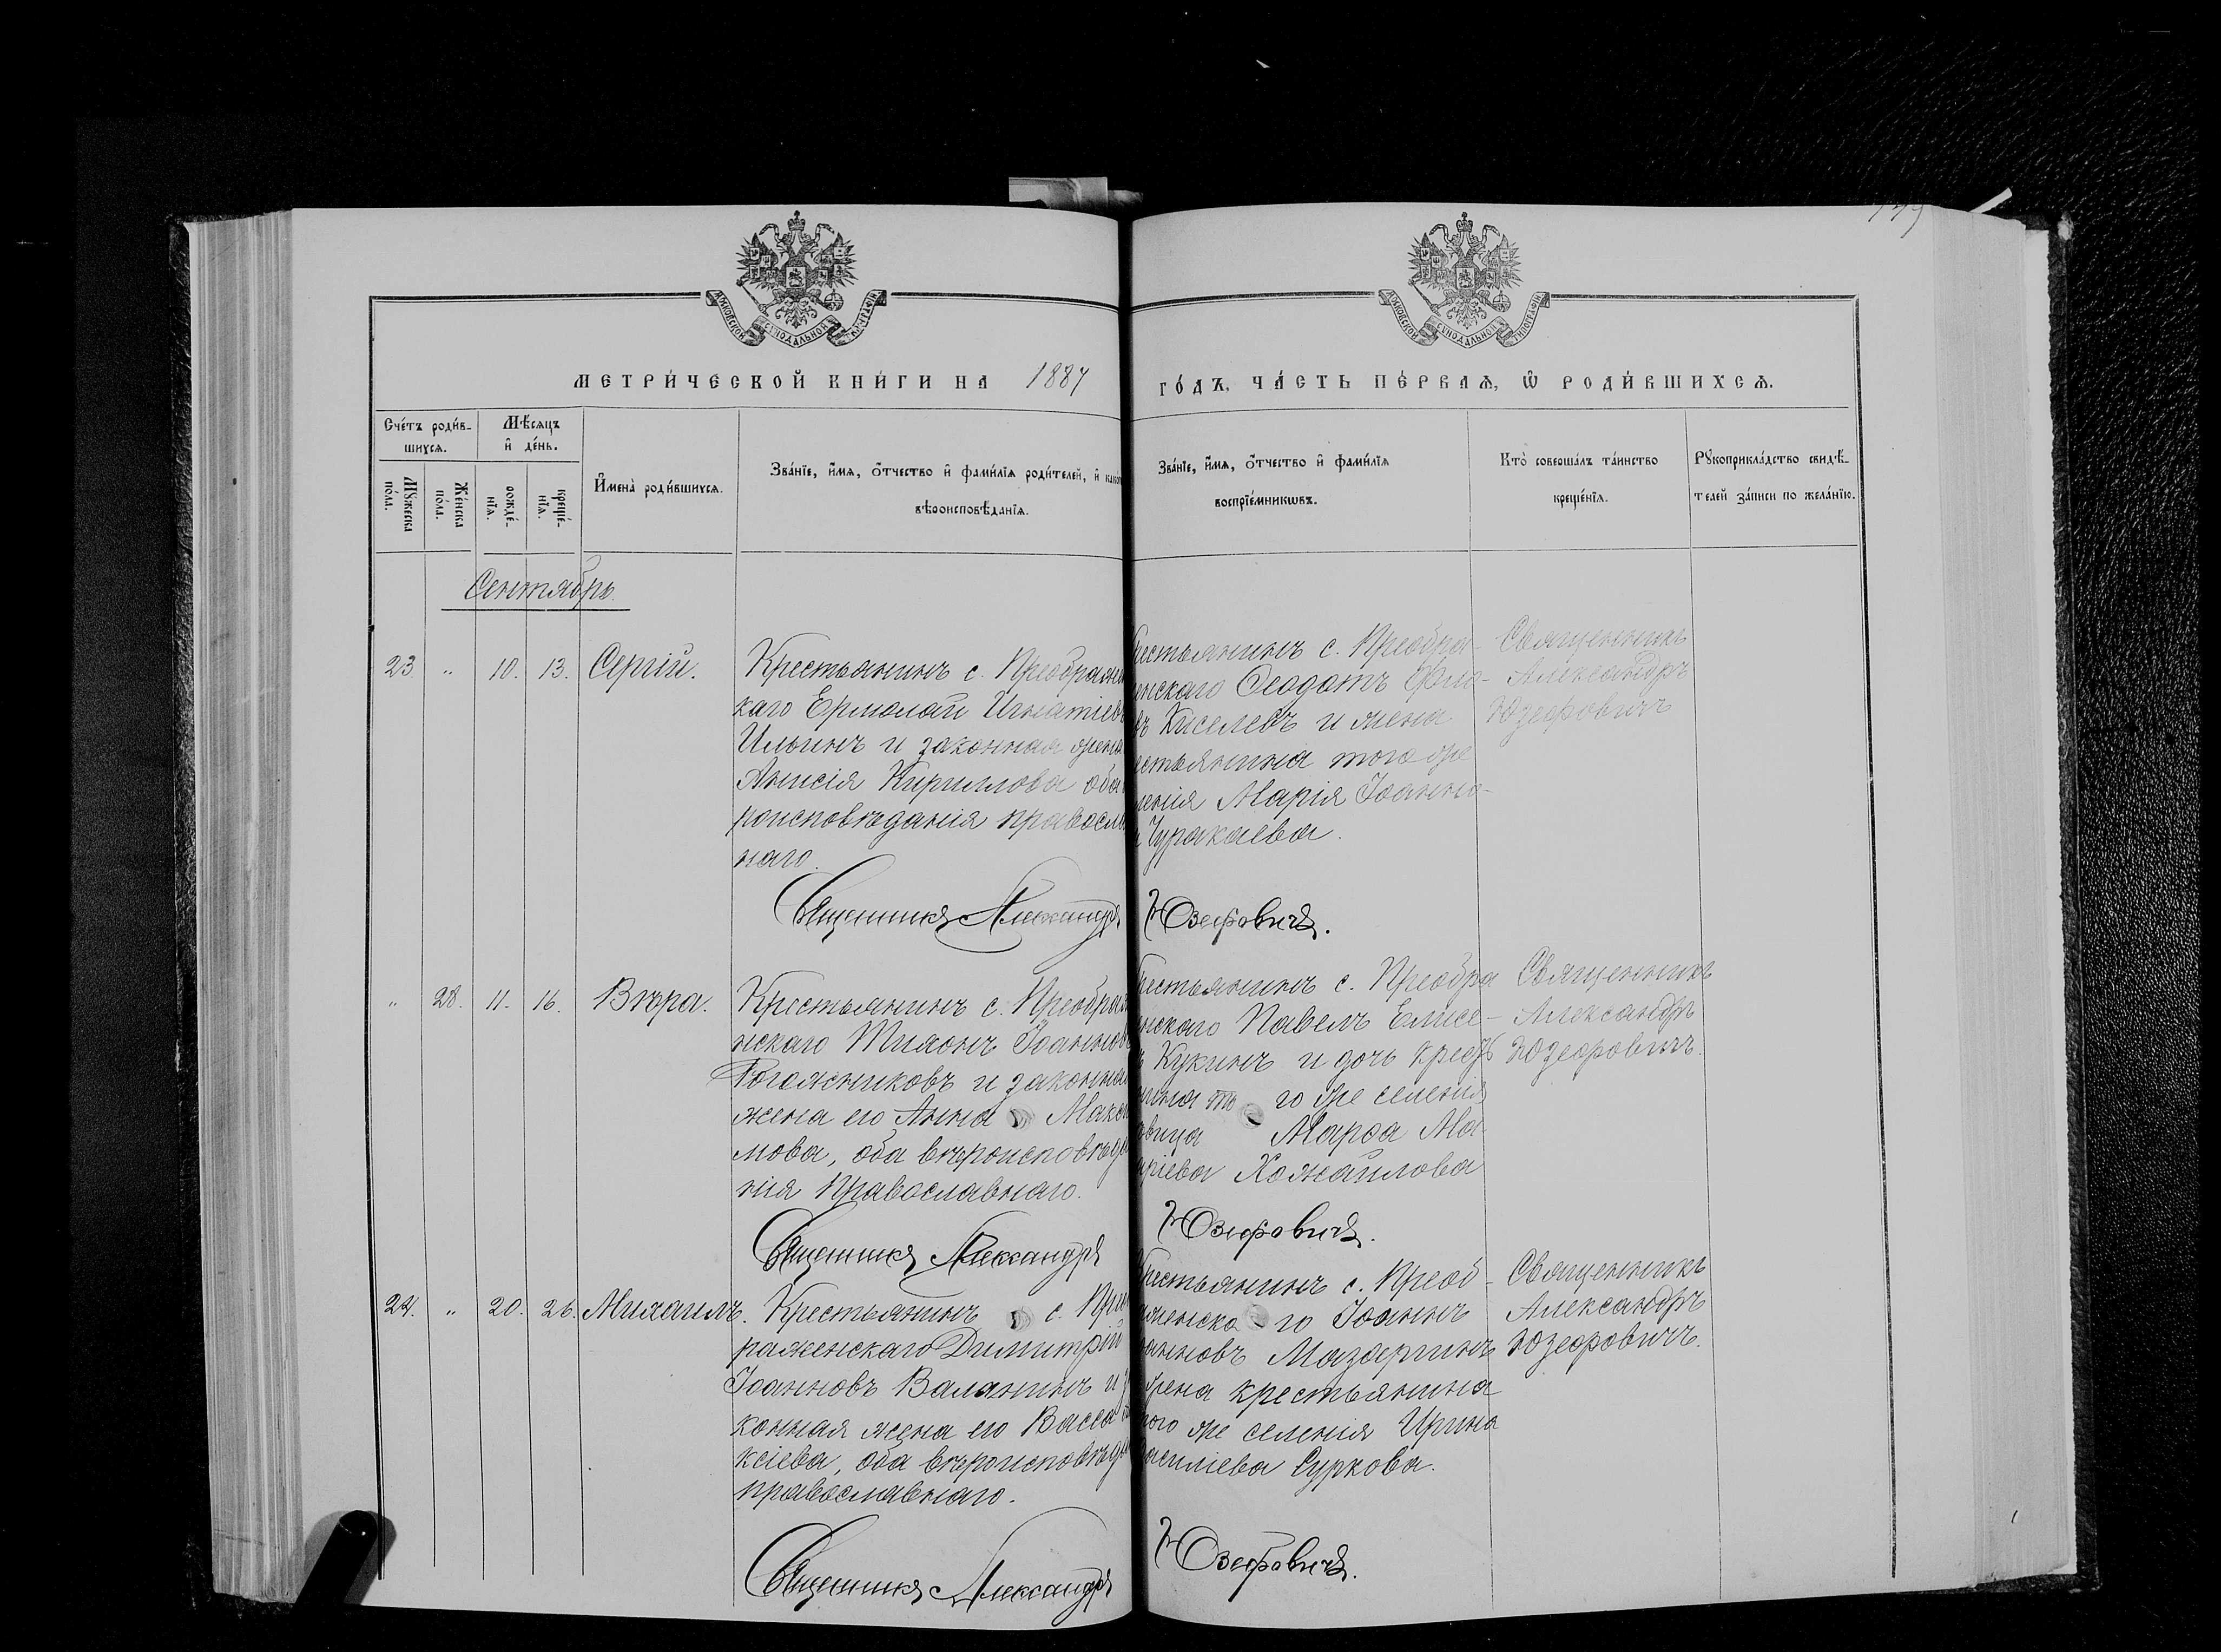 МОСКОВСКОЙ СѴНОДАЛЬНОЙ ТИПОГРАФІИ
МОСКОВСКОЙ СѴНОДАЛЬНОЙ ТИПОГРАФІИ
МЕТРИ́ЧЕСКОЙ КНИ́ГИ НА 1887
ГО́ДЪ, ЧА́СТЬ ПЕ́РВАѦ, Ѡ҆ РОДИ́ВШИХСѦ.
Сче́тъ роди́в-
шихсѧ.
Мѣ́сѧцъ
и҆ де́нь.
Мꙋ́жеска
по́ла.
Же́нска
по́ла.
рожде́-
нїѧ.
креще́-
нїѧ.
И҆мена̀ роди́вшихсѧ.
Зва́нїе, и҆́мѧ, ѻ҆́тчество и҆ фами́лїѧ роди́телей, и҆
вѣроисповѣ́данїѧ.
Зва́нїе, и҆́мѧ, ѻ҆́тчество и҆ фами́лїѧ
воспрїе́мникѡвъ.
Кто̀ соверша́лъ та́инство
креще́нїѧ.
Рꙋкоприкла́дство свидѣ́-
телей за́писи по жела́нїю.
Сентябрь.
23 " 10. 13. Сергій.
Крестьянинъ с. Преображен
каго Ермолай Игнатіевъ
Ильинъ и законная жена
Анисія Кириллова оба
роисповѣданія правосла
наго.
рестьянинъ с. Преобра-
енскаго Ѳеодотъ
въ Киселевъ и жена
рестьянина того же
ленія Марія Іоанно-
Чуракаева.
Священникъ
Александръ
Юзефовичъ
Священникъ Александръ Юзефовичъ.
" 28. 11. 16. Вѣра.
Крестьянинъ с. Преображ
нскаго Тихонъ Іоаннов
Рогожниковъ и законная
жена его Анна Макси
мова, оба вѣроисповѣда
нія Православнаго.
рестьянинъ с. Преобра
енскаго Павелъ Елисе-
въ Кукинъ и дочь крест
нина то го же селенія
овица Марѳа Ма-
аріева Хожаилова
Священникъ
Александръ
Юзефовичъ.
Священникъ Александръ Юзефовичъ.
24. " 20. 26. Михаилъ.
Крестьянинъ с. Преоб
раженскаго Димитрій
Іоанновъ Валянинъ и за
конная жена его Васса
ксіева, оба вѣроисповѣда
православнаго.
рестьянинъ с. Преоб-
аженска го Іоаннъ
оанновъ Мазаргинъ
жена крестьянина
того же селенія Ирина
Василіева Суркова.
Священникъ
Александръ
Юзефовичъ.
Священникъ Александръ Юзефовичъ.